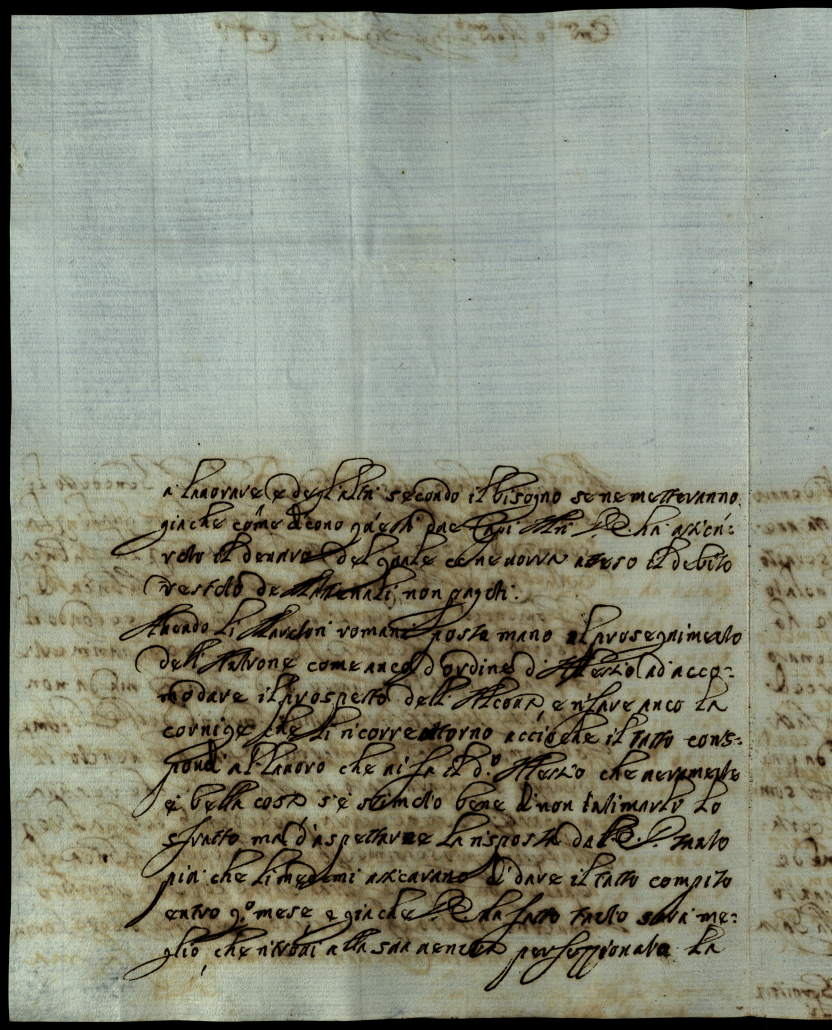 a lavorare e degl'altri secondo il bisogno se ne metteranno
giache come dicono questi due Capi Mri V.E. ha assicu-
rato il denaro del quale ce ne vorrà atteso il debito
restato de Materiali non pagati.
Havendo li romani posto mano al proseguimento
dell' come anco d'ordine di ad acco-
modare il prospetto dell' e rifare anco la
cornige che li ricorre attorno accioche il tutto corris-
pondi al lavoro che vi fa il d.o che veramente
è bella cosa s'è stimato bene di non intimarli lo
sfratto ma d'aspettarne la risposta da V.E. tanto
più che li medemi assicurano di dare il tutto compito
entro q.o mese e giache V.E. ha fatto tanto sarà me-
glio che ritrovi alla sua venuta perfezzionata la